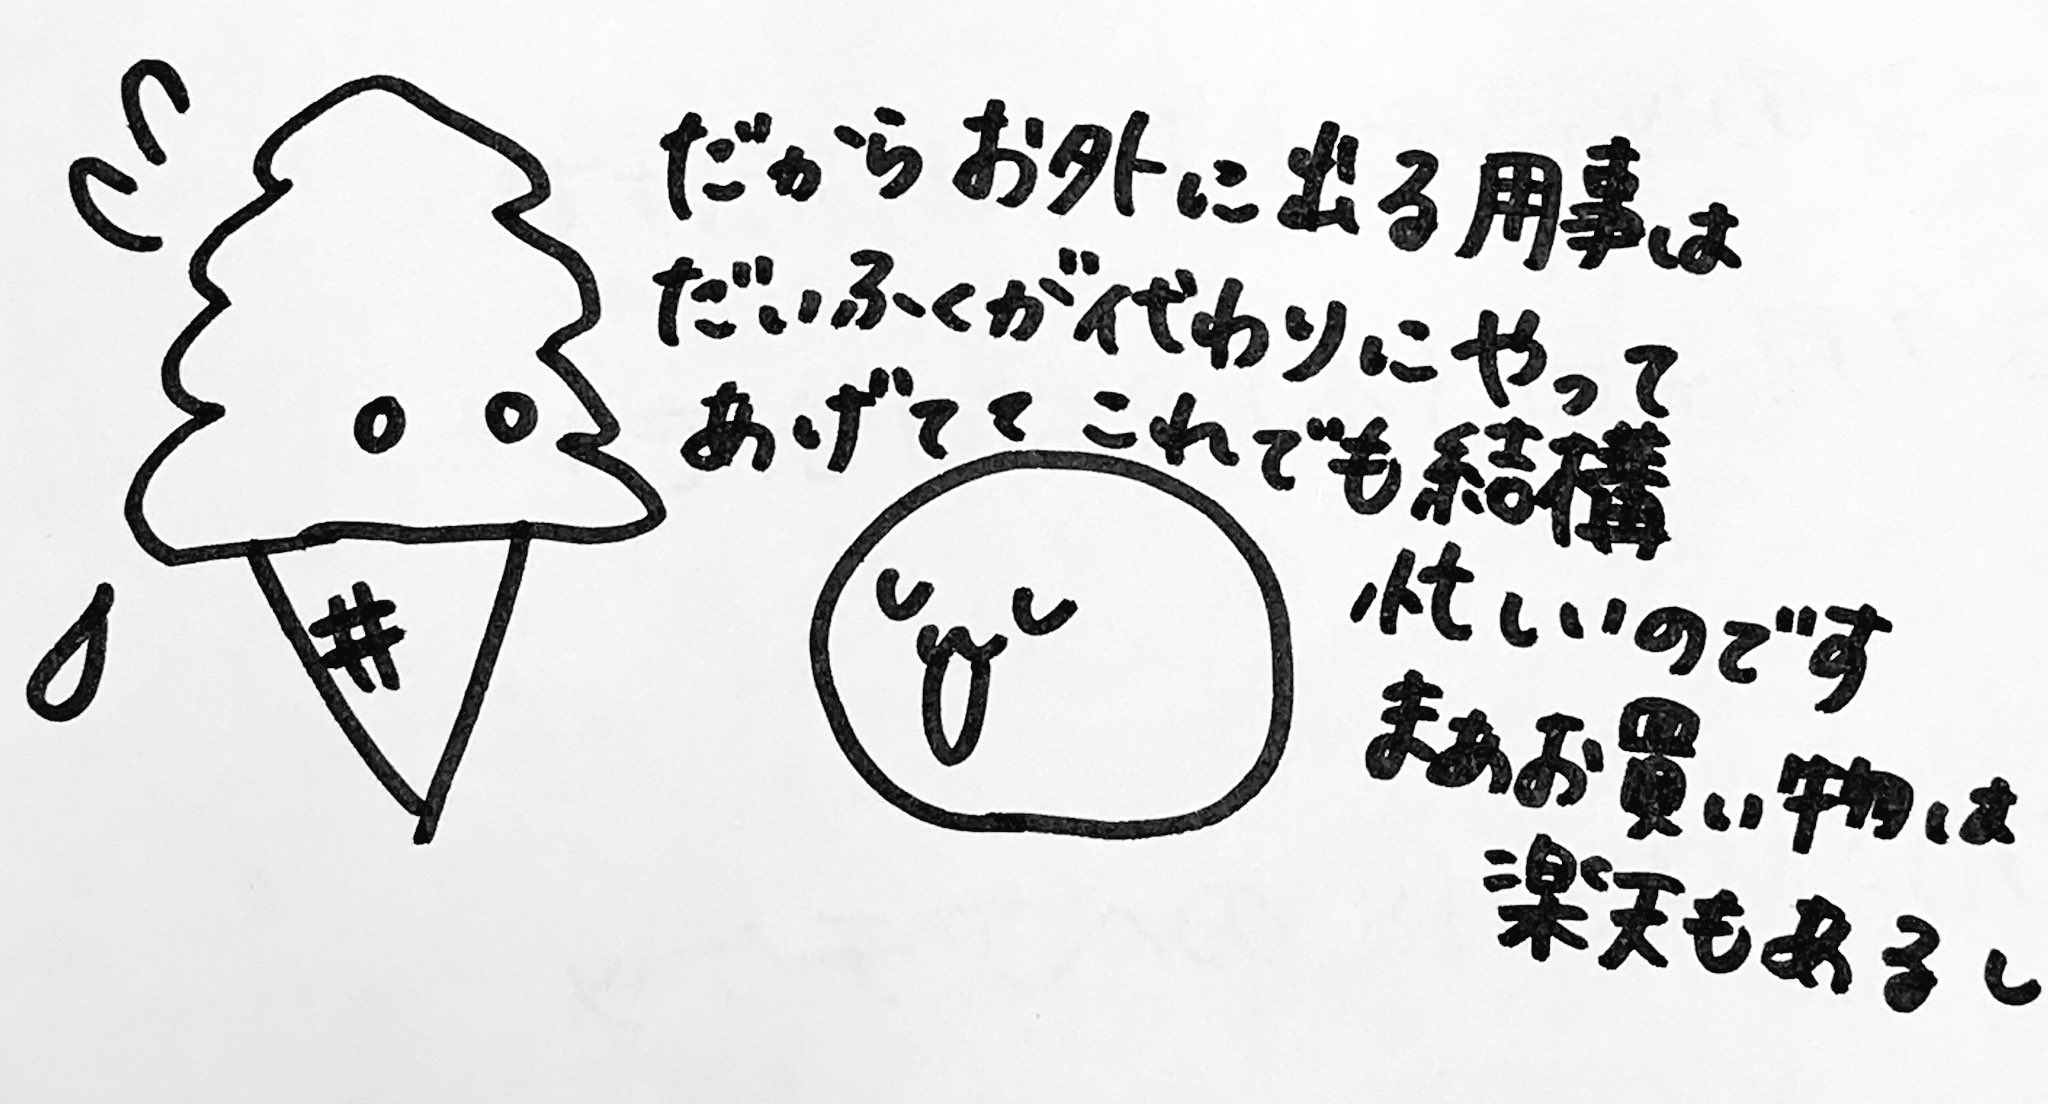 だからお外に出る用事は
だいふくが代わりにやって
あげてて これでも結構
忙しいのです
まぁお買い物は
楽天もあるし